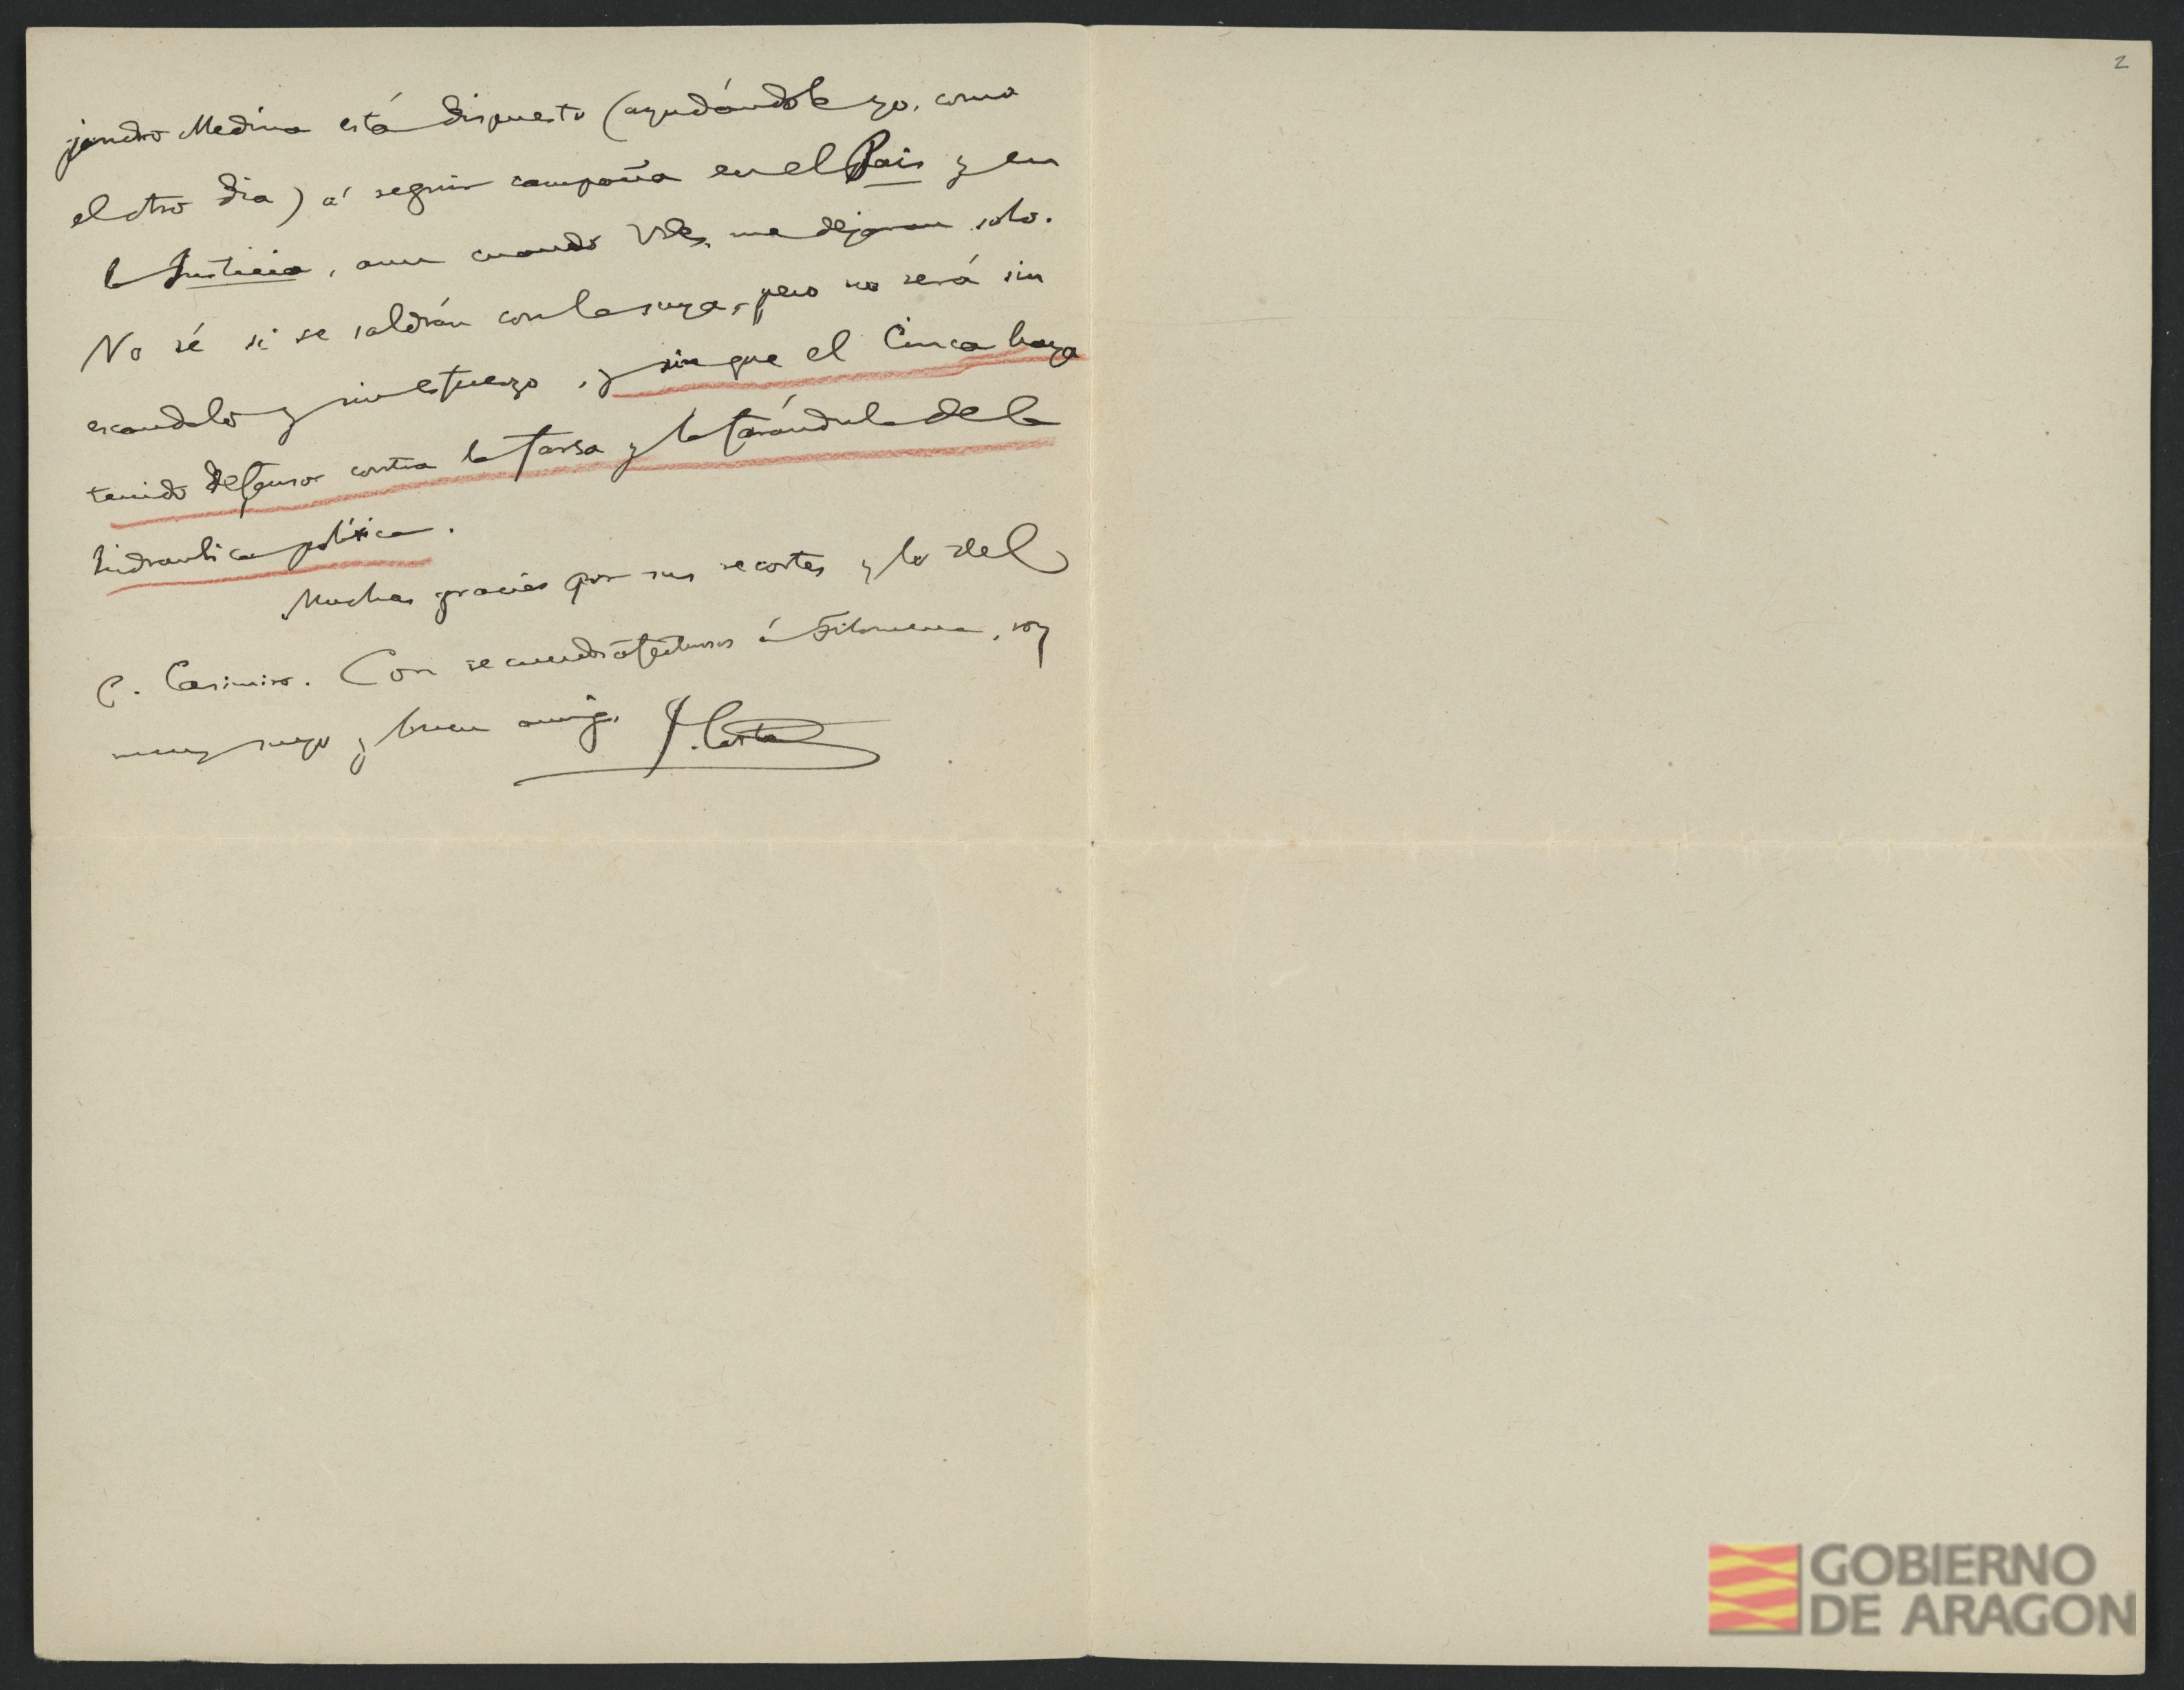 jandro Medina está dispuesto (ayudándole yo, como
el otro dia) á seguir campaña en el Pais y en
la Justicia, aun cuando Vdes. me dejaran solo.
No sé si se saldrán con la suya, pero no será sin
escandalo y sin esfuerzo, y sin que el Cinca haya
tenido defensor contra la farsa y la farándula de la
hidraulica política.
Muchas gracias por sus recortes y lo del
C. Casimiro. Con recuerdos afectuosos á Filomena, soy
muy suyo y buen amigo, J. Costa
2
GOBIERNO
DE ARAGON